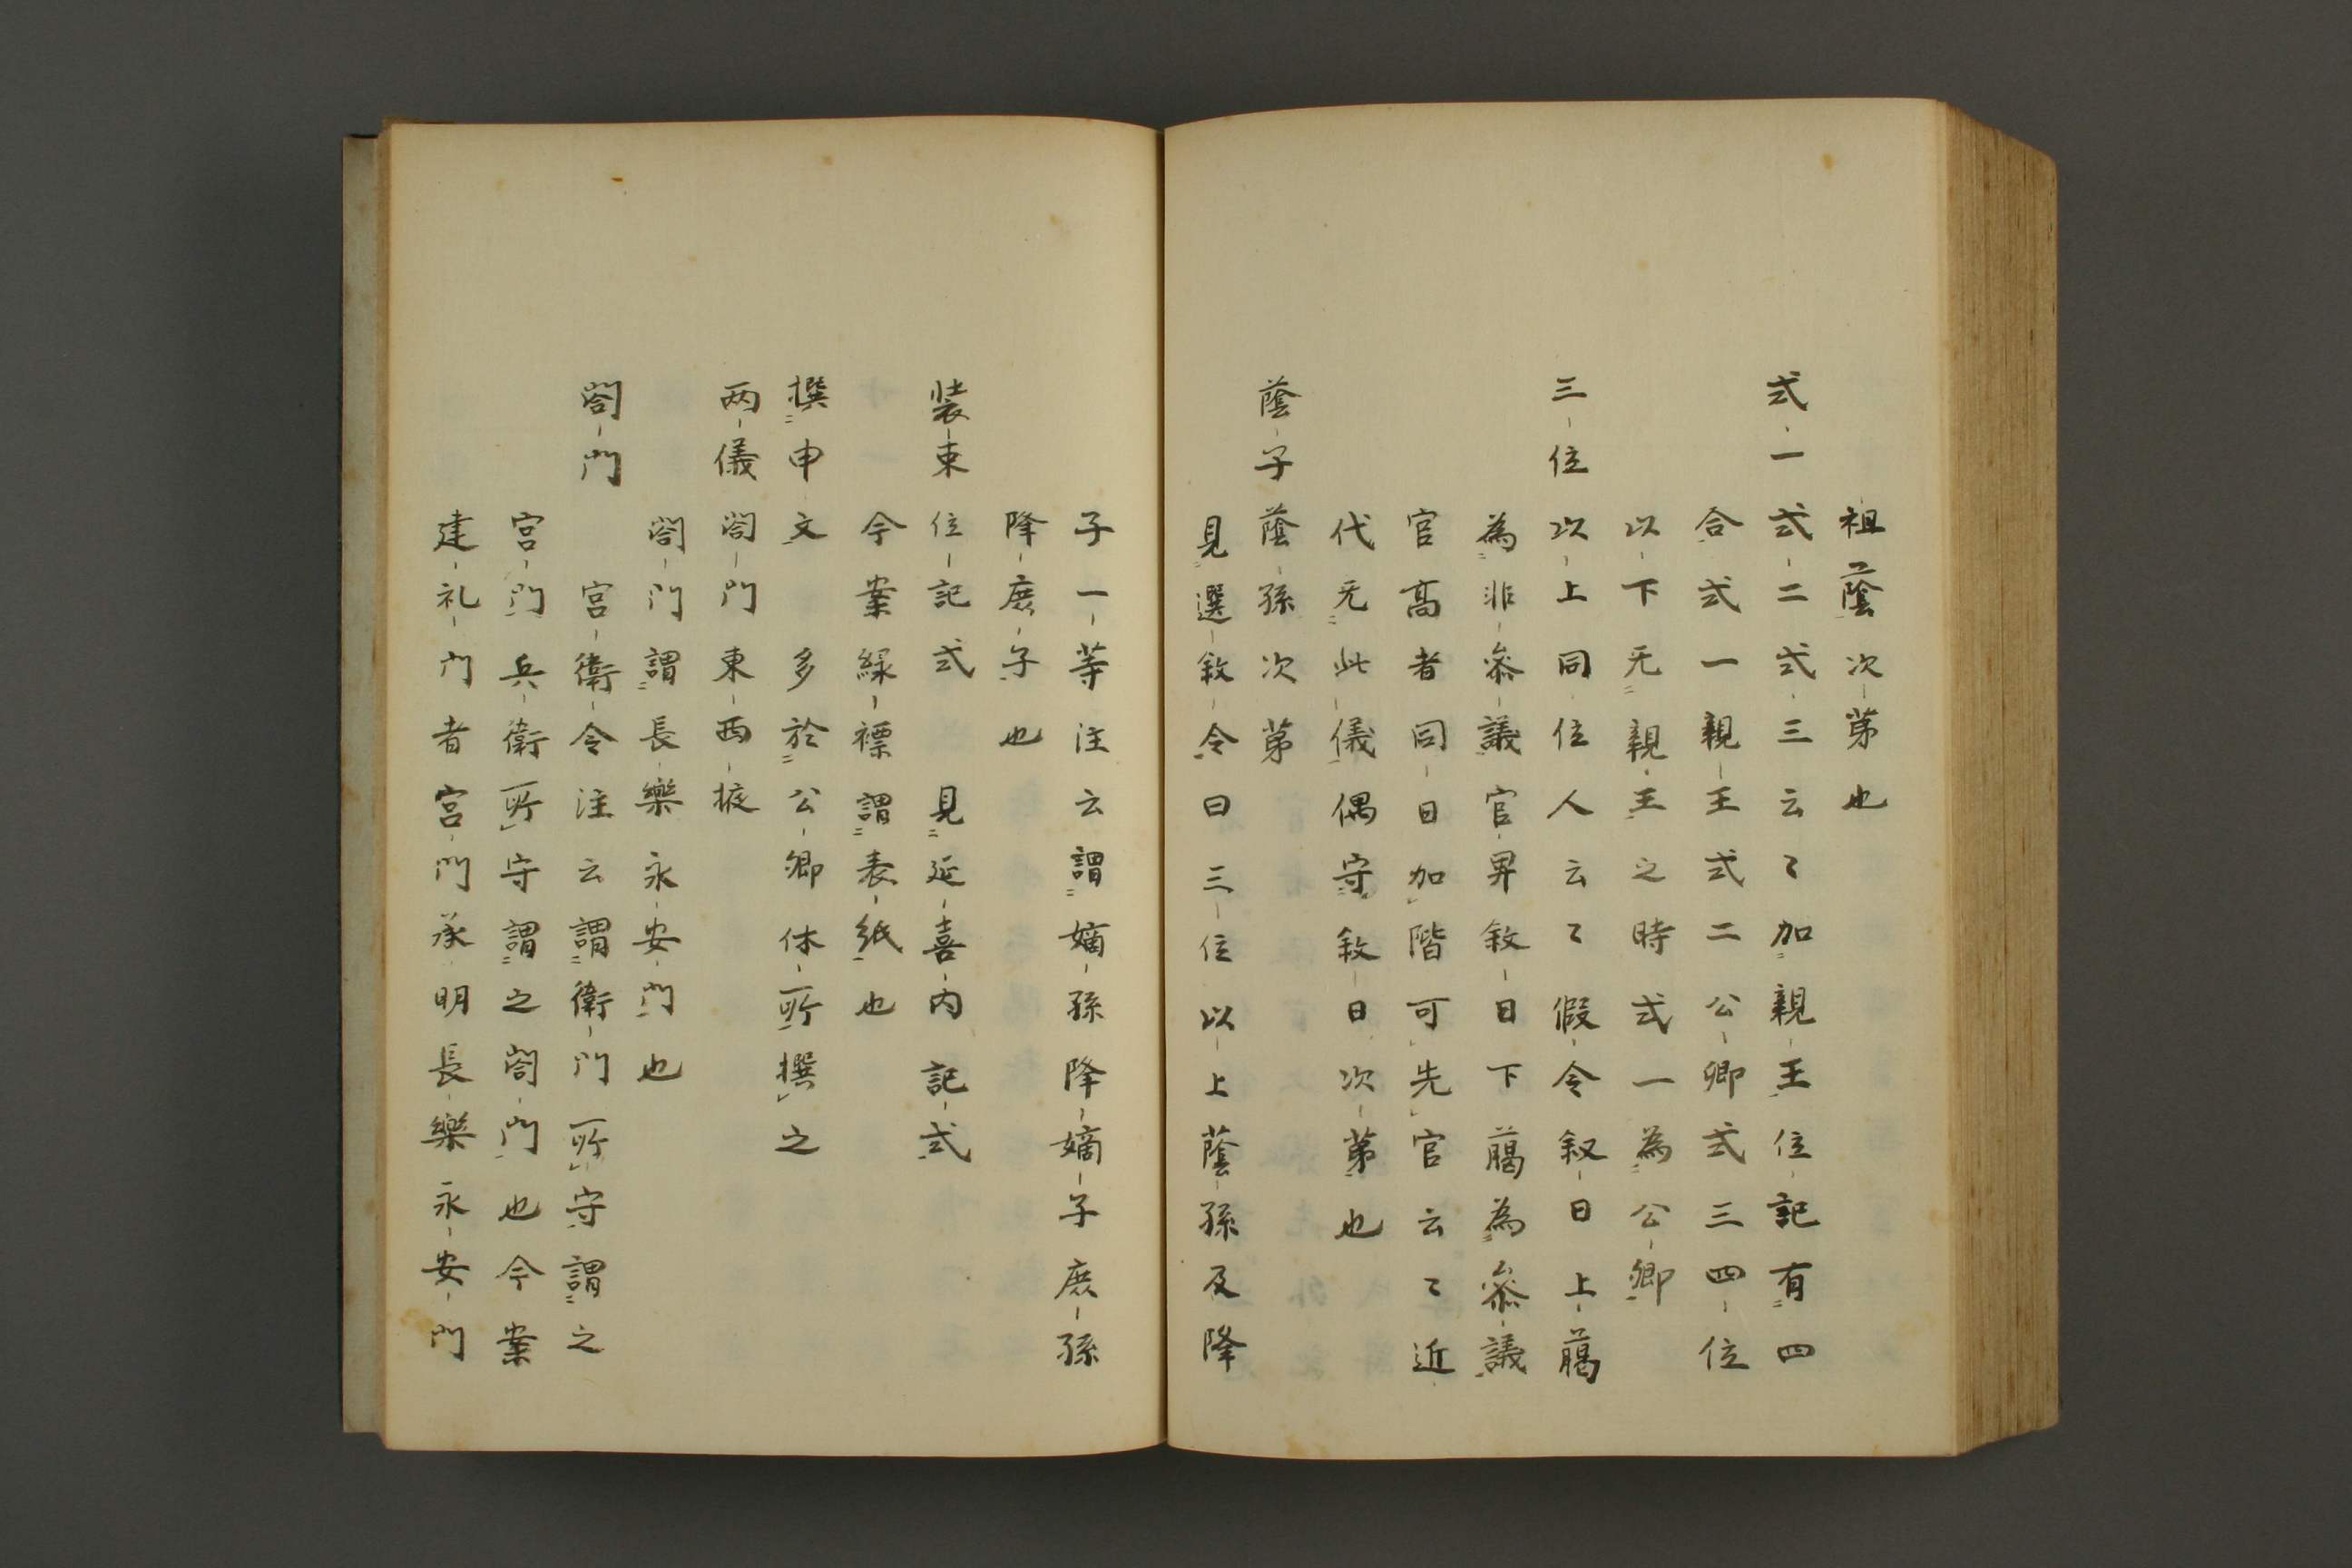 祖蔭次第也
式一式二式三云々加親王位記有四
合式一親王式二公卿式三四位
以下无親王之時式一為公卿
三位以上同位人云々假令叙日上﨟
為非參議官昇敘日下﨟為參議
官高者同日加階可先官云々近
代无此儀偶守敘日次第也
蔭子蔭孫次第
見選敘令曰三位以上蔭孫及降
子一等注云謂嫡孫降嫡子庶孫
降庶子也
装束位記式　見延喜内記式
今案緑褾謂表紙也
撰申文　多於公卿休所撰之
两儀閤門東西掖
閤門謂長樂永安門也
閤門　宮衛令注云謂衛門所守謂之
宮門兵衛所守謂之閤門也今案
建礼門者宮門承明長樂永安門